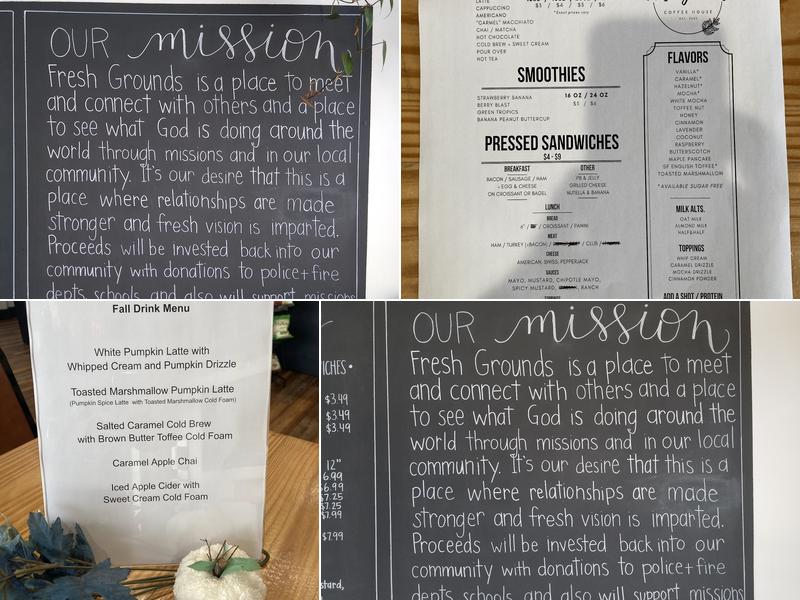 OUR mission
Fresh Grounds is a place to meet
and connect with others and a place
to see what God is doing around the
world through missions and in our local
community. It's our desire that this is a
place where relationships are made
stronger and fresh vision is imparted.
Proceeds will be invested back into our
community with donations to police+fire
depts, schools, and also will support missions
LATTE
CAPPUCCINO
AMERICANO
"CARMEL" MACCHIATO
CHAI / MATCHA
HOT CHOCOLATE
COLD BREW + SWEET CREAM
POUR OVER
HOT TEA
$3 / $4 / $5 / $6
*Exact prices vary
SMOOTHIES
16 OZ / 24 OZ
$5 / $6
STRAWBERRY BANANA
BERRY BLAST
GREEN TROPICS
BANANA PEANUT BUTTERCUP
PRESSED SANDWICHES
$4 - $9
BREAKFAST
BACON / SAUSAGE / HAM
+ EGG & CHEESE
ON CROISSANT OR BAGEL
OTHER
PB & JELLY
GRILLED CHEESE
NUTELLA & BANANA
LUNCH
BREAD
6" / / CROISSANT / PANINI
MEAT
HAM / TURKEY (+BACON) / / CLUB /
CHEESE
AMERICAN, SWISS, PEPPERJACK
SAUCES
MAYO, MUSTARD, CHIPOTLE MAYO,
SPICY MUSTARD, RANCH
TOPPINGS
COFFEE HOUSE
FLAVORS
VANILLA*
CARAMEL*
HAZELNUT*
MOCHA*
WHITE MOCHA
TOFFEE NUT
HONEY
CINNAMON
LAVENDER
COCONUT
RASPBERRY
BUTTERSCOTCH
MAPLE PANCAKE
SF ENGLISH TOFFEE*
TOASTED MARSHMALLOW
*AVAILABLE SUGAR FREE
MILK ALTS.
OAT MILK
ALMOND MILK
HALF&HALF
TOPPINGS
WHIP CREAM
CARAMEL DRIZZLE
MOCHA DRIZZLE
CINNAMON POWDER
ADD A SHOT / PROTEIN
Fall Drink Menu
White Pumpkin Latte with
Whipped Cream and Pumpkin Drizzle
Toasted Marshmallow Pumpkin Latte
(Pumpkin Spice Latte with Toasted Marshmallow Cold Foam)
Salted Caramel Cold Brew
with Brown Butter Toffee Cold Foam
Caramel Apple Chai
Iced Apple Cider with
Sweet Cream Cold Foam
ICHES •
$3.49
$3.49
$3.49
12"
6.99
$6.99
$7.25
$7.25
$7.99
$7.99
stard,
OUR mission
Fresh Grounds is a place to meet
and connect with others and a place
to see what God is doing around the
world through missions and in our local
community. It's our desire that this is a
place where relationships are made
stronger and fresh vision is imparted.
Proceeds will be invested back into our
community with donations to police+fire
depts, schools, and also will support missions